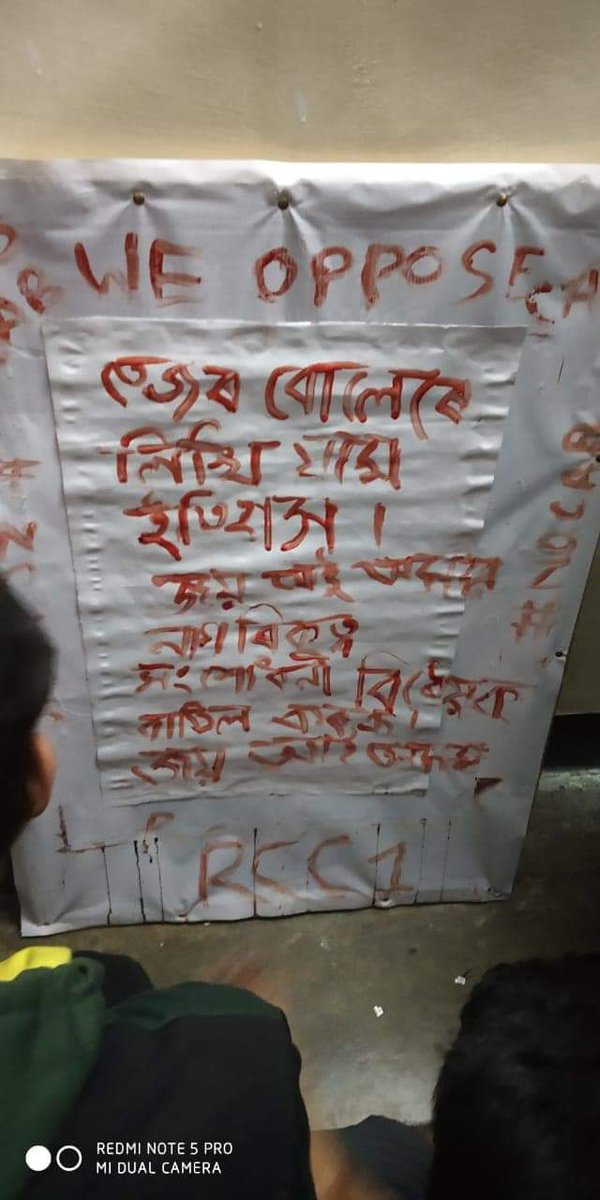 WE OPPOSE
তেজৰ বোলেৰে
লিখি যাম
ইতিহাস ।
জয় আই অসম
নাগৰিকত্ব
সংশোধনী বিধেয়ক
বাতিল কৰক ।
জয় আই অসম
#NOCAB
RCC1
REDMI NOTE 5 PRO
MI DUAL CAMERA